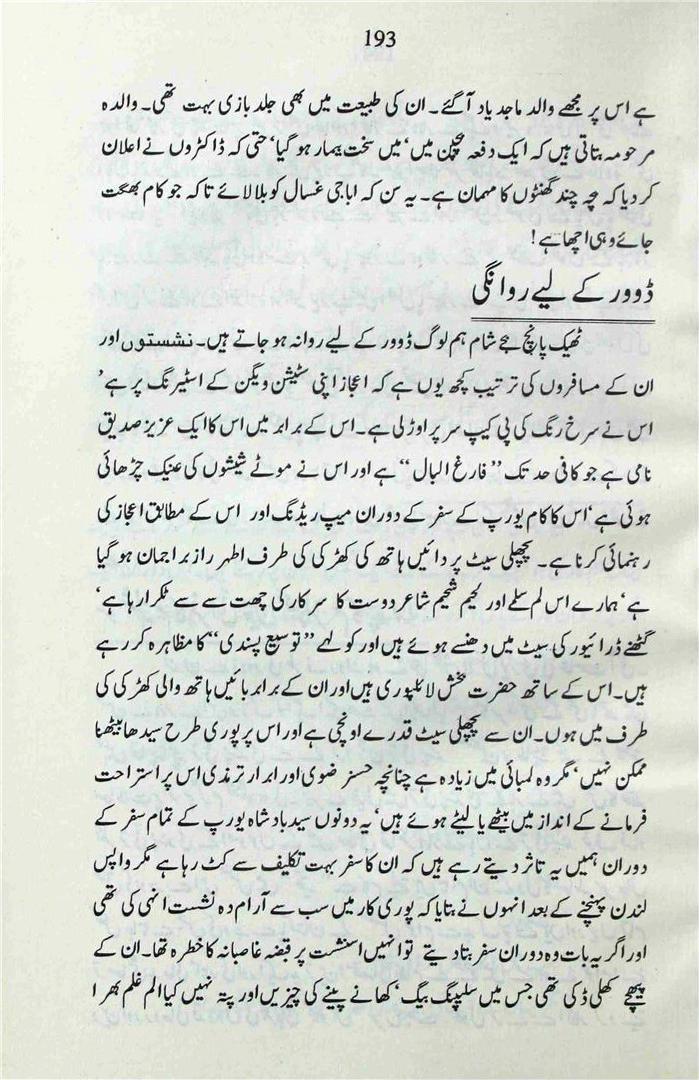 193
ہے اس پر مجھے والد ماجد یاد آگئے۔ ان کی طبیعت میں بھی جلد بازی بہت تھی۔ والدہ
مرحومہ بتاتی ہیں کہ ایک دفعہ بچپن میں‘ میں سخت بیمار ہو گیا‘ حتی کہ ڈاکٹروں نے اعلان
کر دیا کہ بچہ چند گھنٹوں کا مہمان ہے۔ یہ سن کہ اباجی غسال کو بلا لائے تاکہ جو کام بھگت
جائے وہی اچھا ہے!
ڈوور کے لیے روانگی
ٹھیک پانچ بجے شام ہم لوگ ڈوور کے لیے روانہ ہو جاتے ہیں۔ نشستوں اور
ان کے مسافروں کی ترتیب کچھ یوں ہے کہ اعجاز اپنی سٹیشن ویگن کے اسٹیرنگ پر ہے‘
اس نے سرخ رنگ کی پی کیپ سر پر اوڑلی ہے۔ اس کے برابر میں اس کا ایک عزیز صدیق
نامی ہے جو کافی حد تک ’’فارغ البال‘‘ ہے اور اس نے موٹے شیشوں کی عینک چڑھائی
ہوئی ہے‘ اس کا کام یورپ کے سفر کے دوران میپ ریڈنگ اور اس کے مطابق اعجاز کی
رہنمائی کرنا ہے۔ پچھلی سیٹ پر دائیں ہاتھ کی کھڑکی کی طرف اطہر راز براجمان ہو گیا
ہے‘ ہمارے اس لم سلمے اور لحیم شحیم شاعر دوست کا سر کار کی چھت سے سے ٹکرا رہا ہے‘
گھٹنے ڈرائیور کی سیٹ میں دھنسے ہوئے ہیں اور کولہے ’’توسیع پسندی‘‘ کا مظاہرہ کر رہے
ہیں۔ اس کے ساتھ حضرت بخش لائلپوری ہیں اور ان کے برابر بائیں ہاتھ والی کھڑکی کی
طرف میں ہوں۔ ان سے پچھلی سیٹ قدرے اونچی ہے اور اس پر پوری طرح سیدھا بیٹھنا
ممکن نہیں‘ مگر وہ لمبائی میں زیادہ ہے چنانچہ حسنز ضوی اور ابرار ترمذی اس پر استراحت
فرمانے کے انداز میں بیٹھے یا لیٹے ہوئے ہیں‘ یہ دونوں سید بادشاہ یورپ کے تمام سفر کے
دوران ہمیں یہ تاثر دیتے رہے ہیں کہ ان کا سفر بہت تکلیف سے کٹ رہا ہے مگر واپس
لندن پہنچنے کے بعد انہوں نے بتایا کہ پوری کار میں سب سے آرام دہ نشست انہی کی تھی
اور اگر یہ بات وہ دوران سفر بتا دیتے تو انہیں اسنشست پر قبضہ غاصبانہ کا خطرہ تھا۔ ان کے
پیچھے کھلی ڈکی تھی جس میں سلیپنگ بیگ‘ کھانے پینے کی چیزیں اور پتہ نہیں کیا الم غلم بھر ا